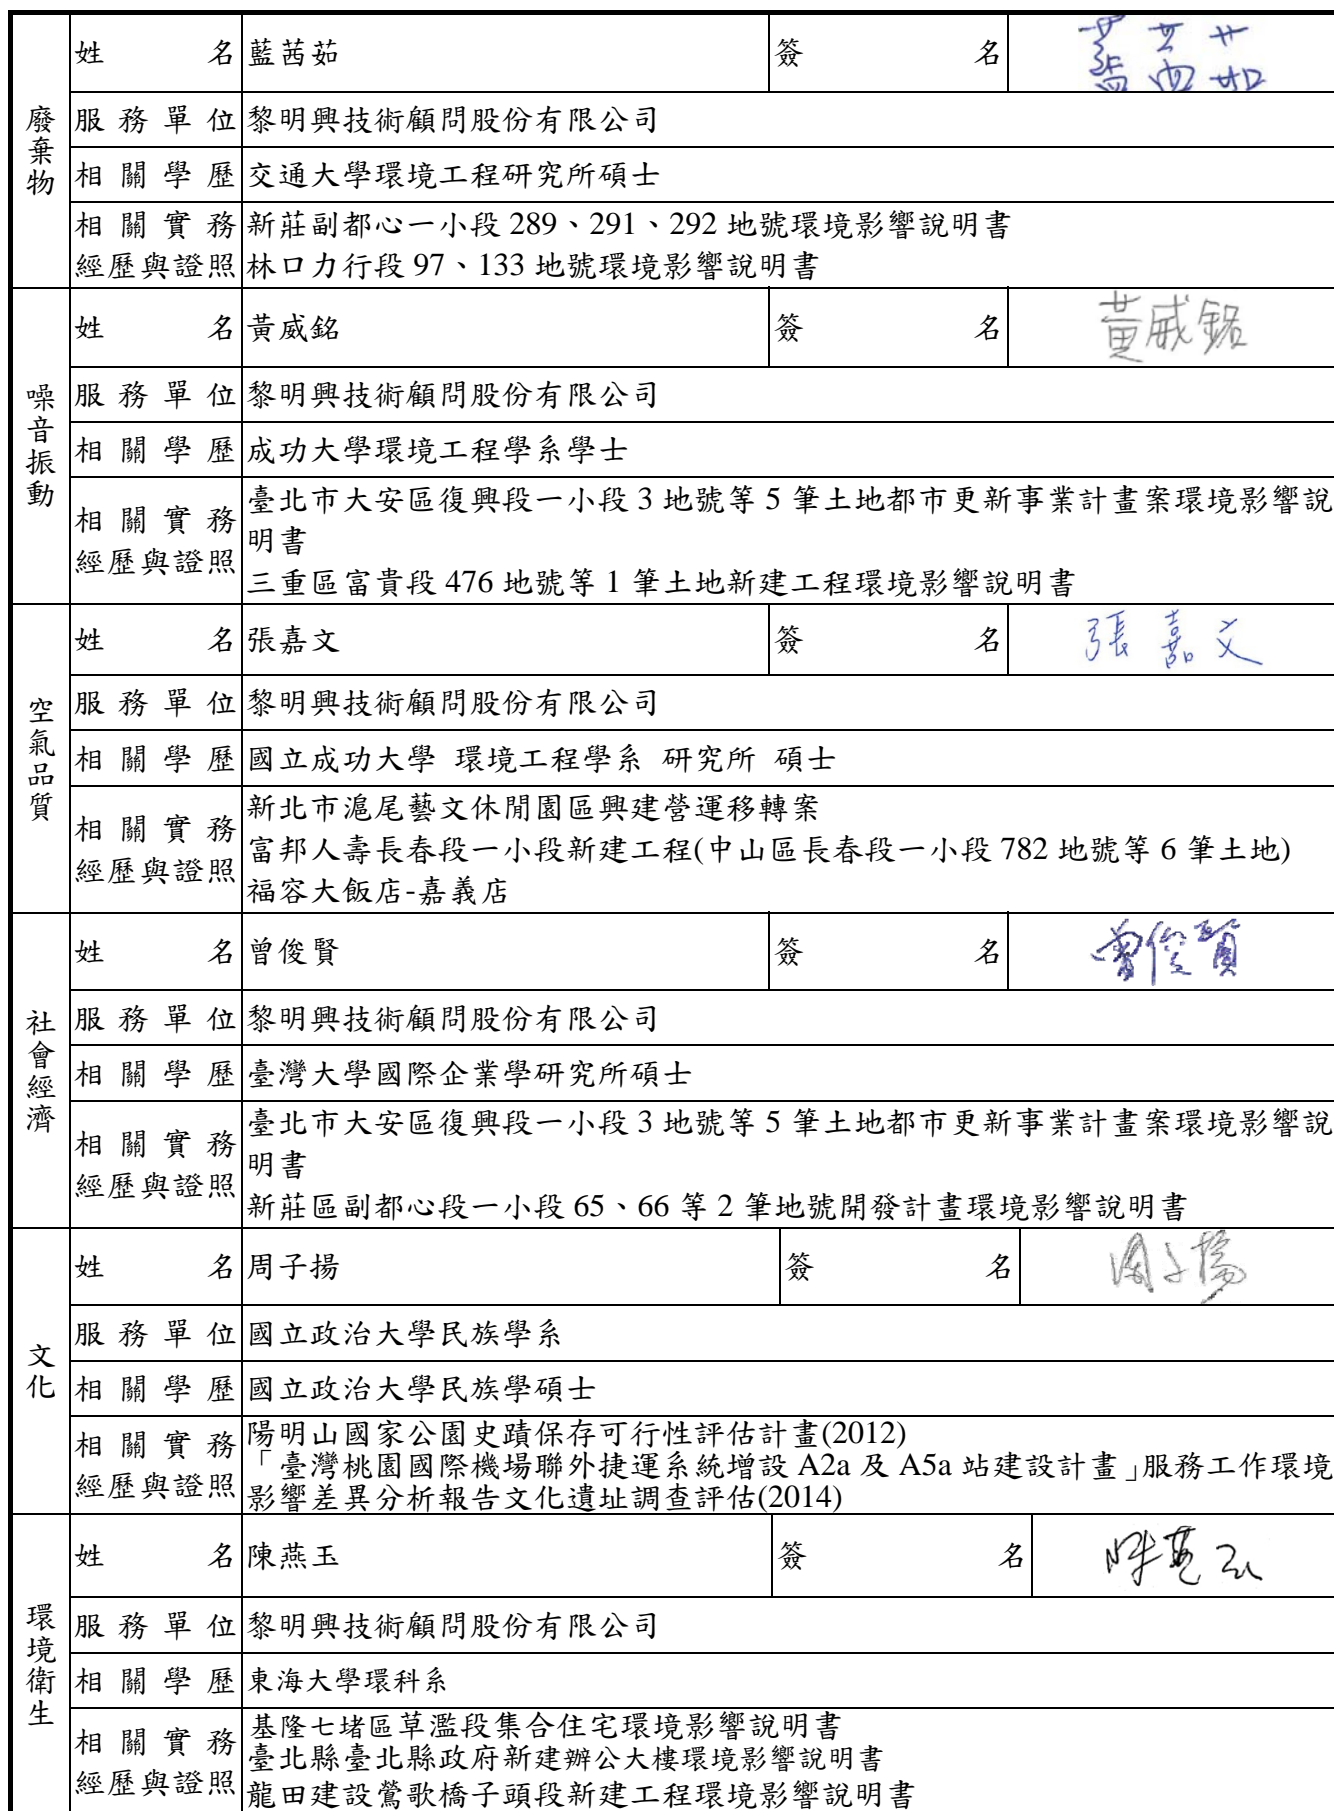 廢棄物
姓名 藍茜茹 簽名 藍茜茹
服務單位 黎明興技術顧問股份有限公司
相關學歷 交通大學環境工程研究所碩士
相關實務經歷與證照 新莊副都心一小段 289、291、292 地號環境影響說明書
林口力行段 97、133 地號環境影響說明書
噪音振動
姓名 黃威銘 簽名 黃威銘
服務單位 黎明興技術顧問股份有限公司
相關學歷 成功大學環境工程學系學士
相關實務經歷與證照 臺北市大安區復興段一小段 3 地號等 5 筆土地都市更新事業計畫案環境影響說
明書
三重區富貴段 476 地號等 1 筆土地新建工程環境影響說明書
空氣品質
姓名 張嘉文 簽名 張嘉文
服務單位 黎明興技術顧問股份有限公司
相關學歷 國立成功大學 環境工程學系 研究所 碩士
相關實務經歷與證照 新北市滬尾藝文休閒園區興建營運移轉案
富邦人壽長春段一小段新建工程(中山區長春段一小段 782 地號等 6 筆土地)
福容大飯店-嘉義店
社會經濟
姓名 曾俊賢 簽名 曾俊賢
服務單位 黎明興技術顧問股份有限公司
相關學歷 臺灣大學國際企業學研究所碩士
相關實務經歷與證照 臺北市大安區復興段一小段 3 地號等 5 筆土地都市更新事業計畫案環境影響說
明書
新莊區副都心段一小段 65、66 等 2 筆地號開發計畫環境影響說明書
文化
姓名 周子揚 簽名 周子揚
服務單位 國立政治大學民族學系
相關學歷 國立政治大學民族學碩士
相關實務經歷與證照 陽明山國家公園史蹟保存可行性評估計畫(2012)
「臺灣桃園國際機場聯外捷運系統增設 A2a 及 A5a 站建設計畫」服務工作環境
影響差異分析報告文化遺址調查評估(2014)
環境衛生
姓名 陳燕玉 簽名 陳燕玉
服務單位 黎明興技術顧問股份有限公司
相關學歷 東海大學環科系
相關實務經歷與證照 基隆七堵區草濫段集合住宅環境影響說明書
臺北縣臺北縣政府新建辦公大樓環境影響說明書
龍田建設鶯歌橋子頭段新建工程環境影響說明書